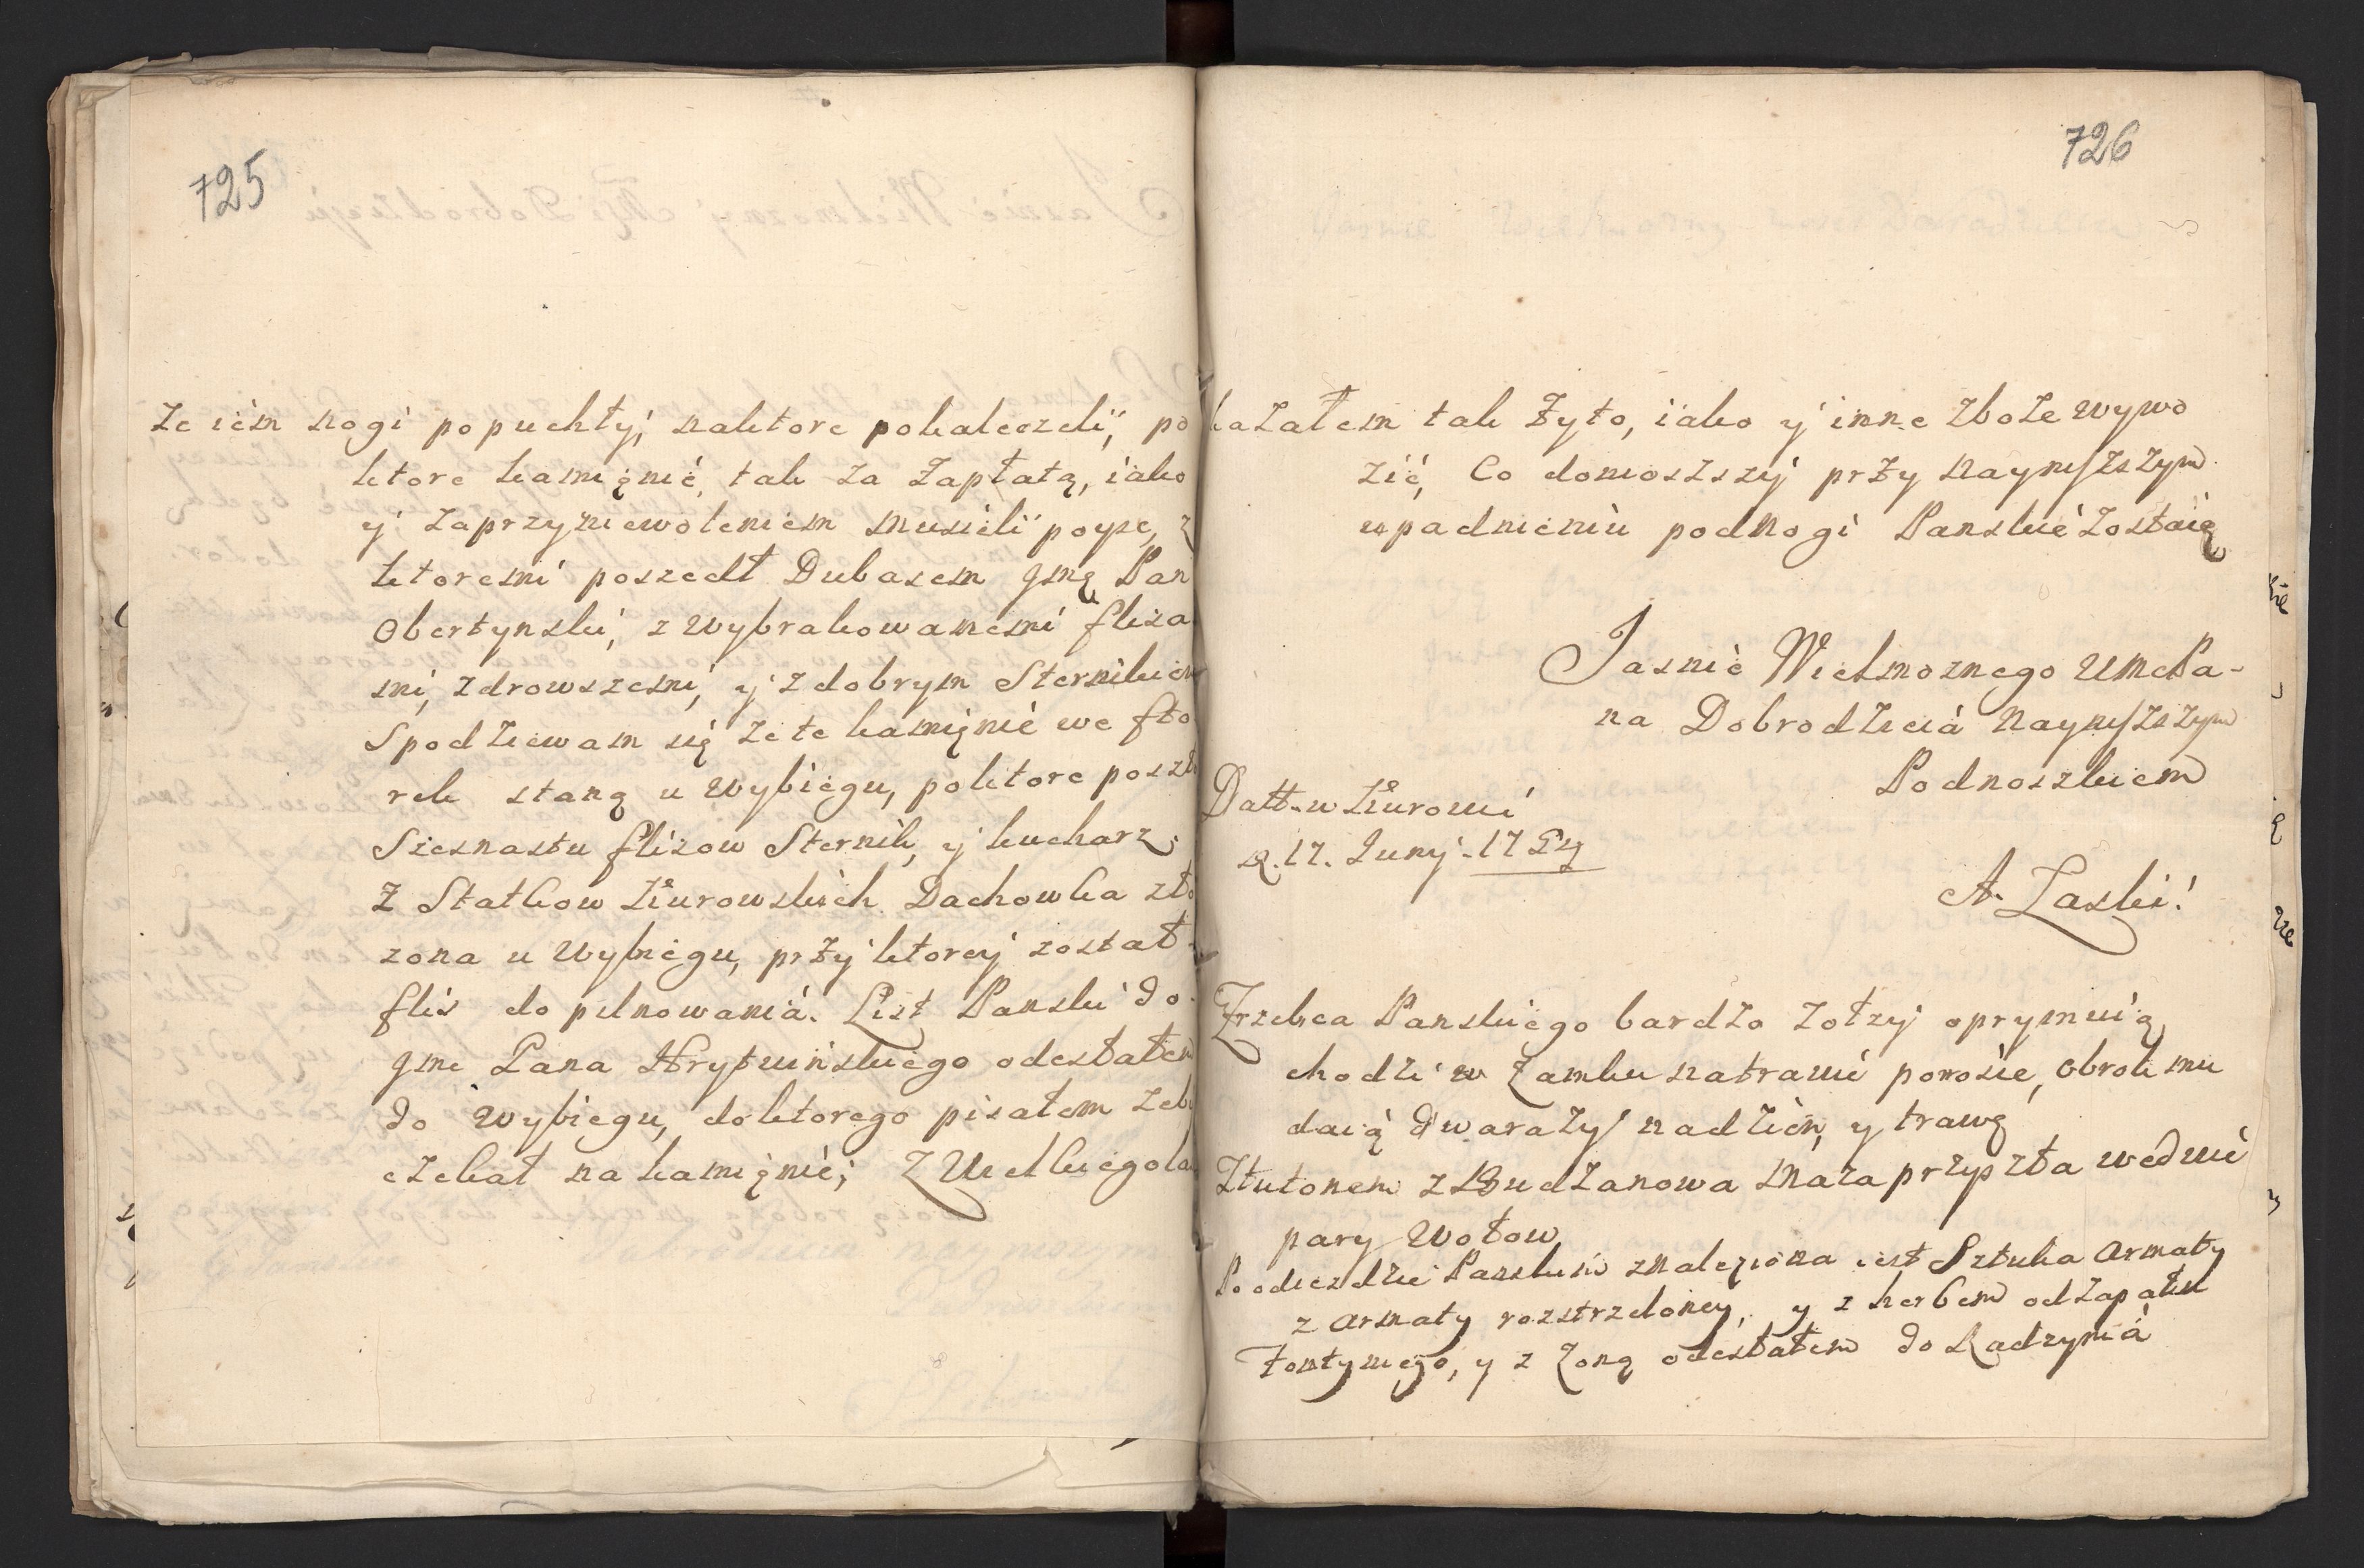 725
Ze iem nogi popuchły, naktore pokaleczeli, po
ktore kamięnie, tak za Zapłatą, iako
y zaprzyniewoleniem musieli poysc, z
ktoremi poszedł Dubasem Jmę Pan
Obertynski, z wybrakowanemi fliza
mi, zdrowszemi, y z dobrym Sternikiem
Spodziewam się Ze te kamięnie we fto
rek staną u Wybiegu, poktore poszło
Szesnastu flizow Sternik, y kucharz;
Z Statkow Kurowskich Dachowka zło
zona u Wybiegu, przy ktorey został
flis do pilnowania. List Panski do
Jme Pana Hrybuińskiego odesłałem
do Wybiegu, doktorego pisałem zeby
czekał na kamięnie; Z Wielkiego la
726
kazałem tak Zyto, iako y inne Zboze wywo
zić, Co doniosszszy przy naynyszszym
upadnieniu podnogi Panskie zostaię
Jasnie Wielmoznego UmcPa-
na Dobrodzieia naynyszszym
Podnoszkiem
Datt w Kurowi
d. 17. Juny
A. Laski!
Zrzebca Panskiego bardzo Zołzy oprymuią
chodzi w Zamku natrawie porosie, obrok mu
daią dwarazy nadzien, y trawę
Ztutonem z Budzanowa Maza przyszła wedwie
pary Wołow
Po odiezdzie Panskim znaleziona iest Sztuka Armaty
z Armaty rozstrzeloney, y z herbem odzapału
y z Zoną odesłałem do Radzynia